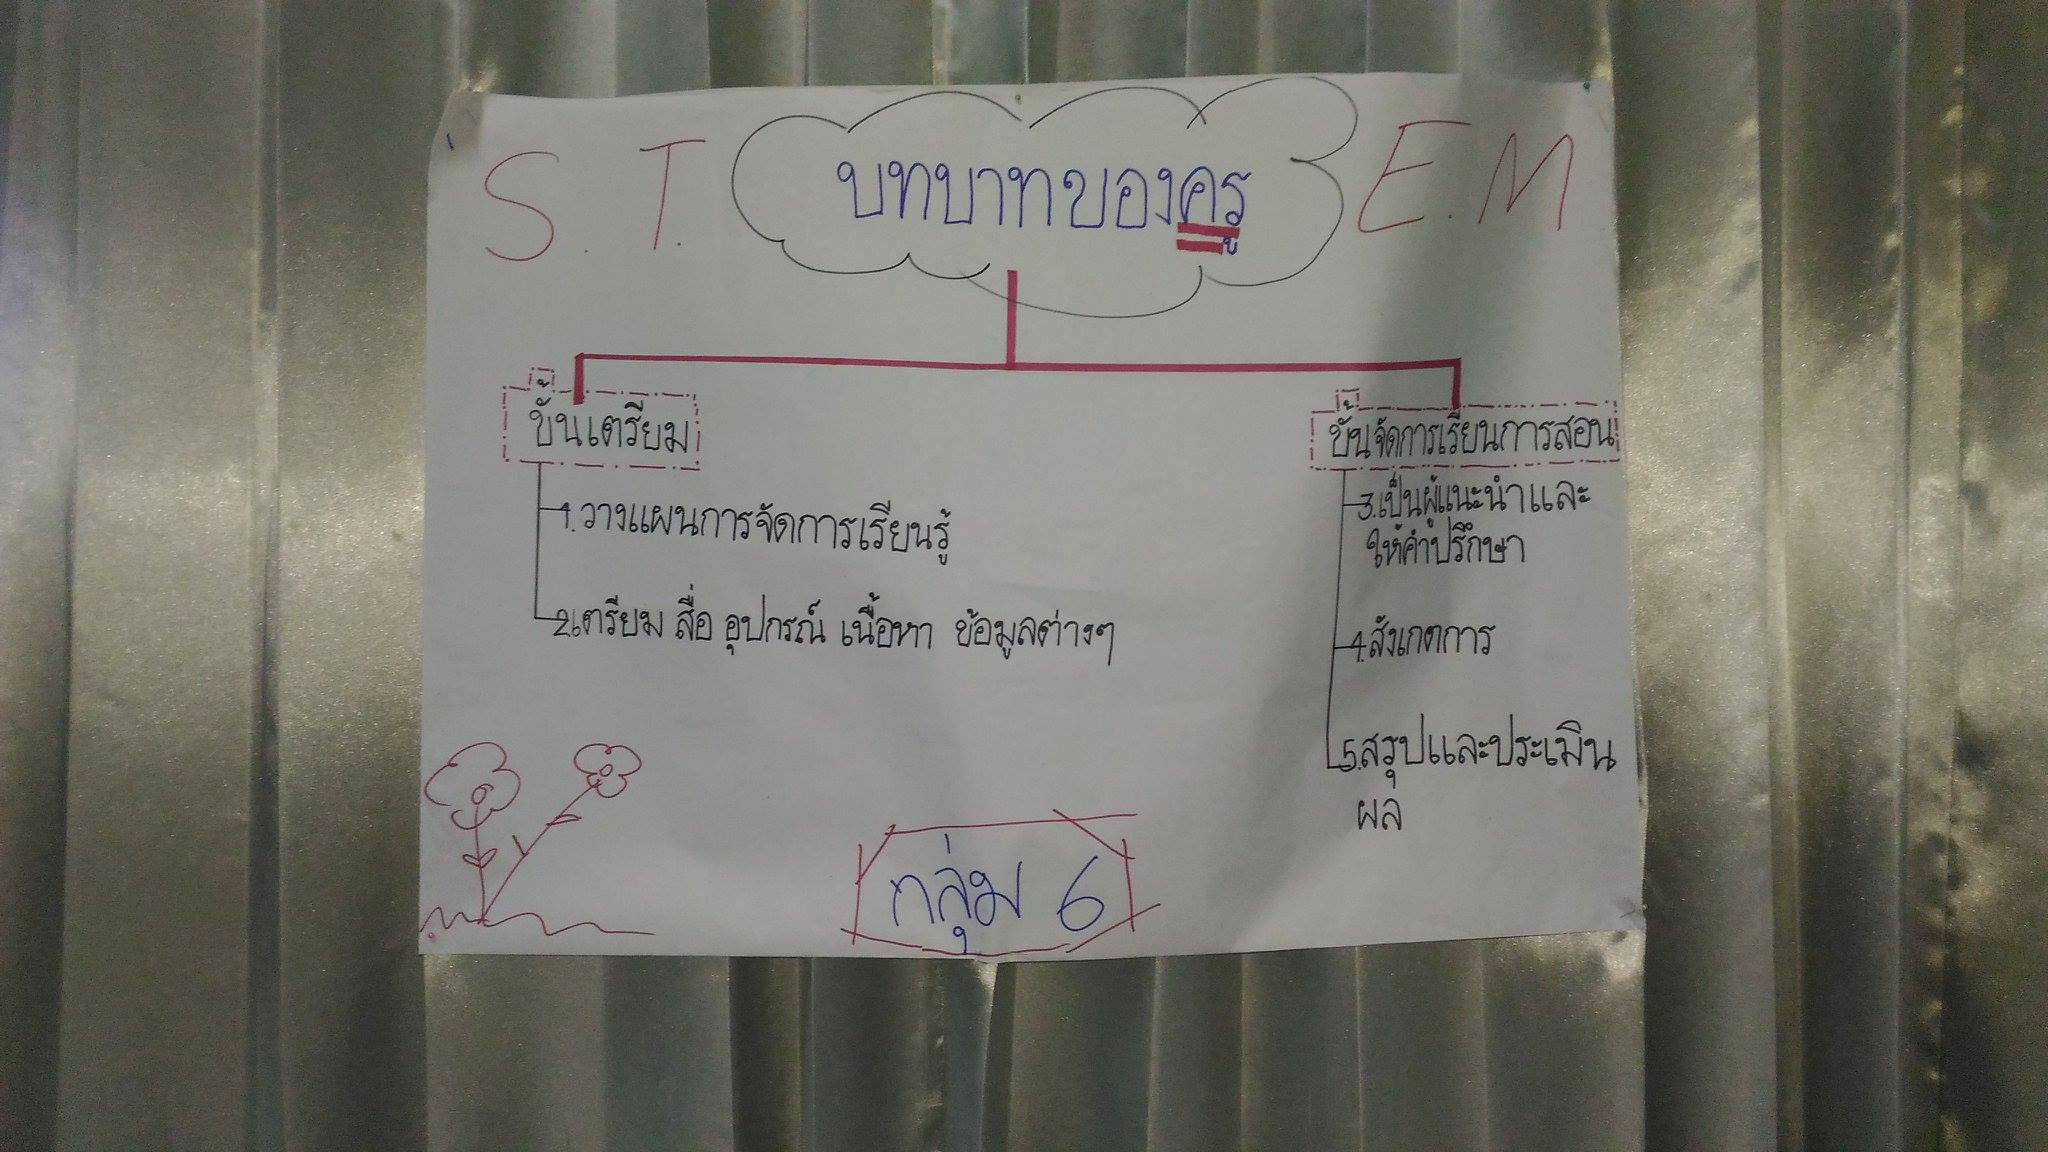 S. T. บทบาทของครู E. M
ขั้นเตรียม
1. วางแผนการจัดการเรียนรู้
2. เตรียม สื่อ อุปกรณ์ เนื้อหา ข้อมูลต่างๆ
ขั้นจัดการเรียนการสอน
3. เป็นผู้แนะนำและ
ให้คำปรึกษา
4. สังเกตการ
5. สรุปและประเมิน
ผล
กลุ่ม 6